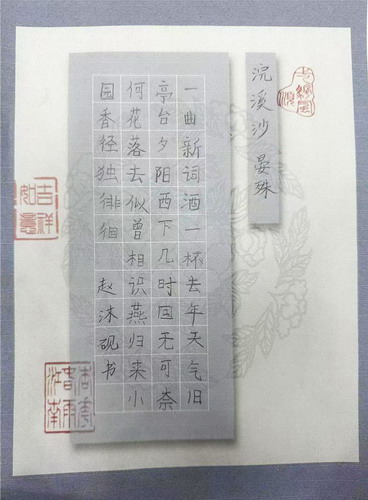 浣溪沙 晏殊
一曲新词酒一杯去年天气旧
亭台夕阳西下几时回无可奈
何花落去似曾相识燕归来小
园香径独徘徊 赵沐砚书
吉祥
如意
杏花
春雨
江南